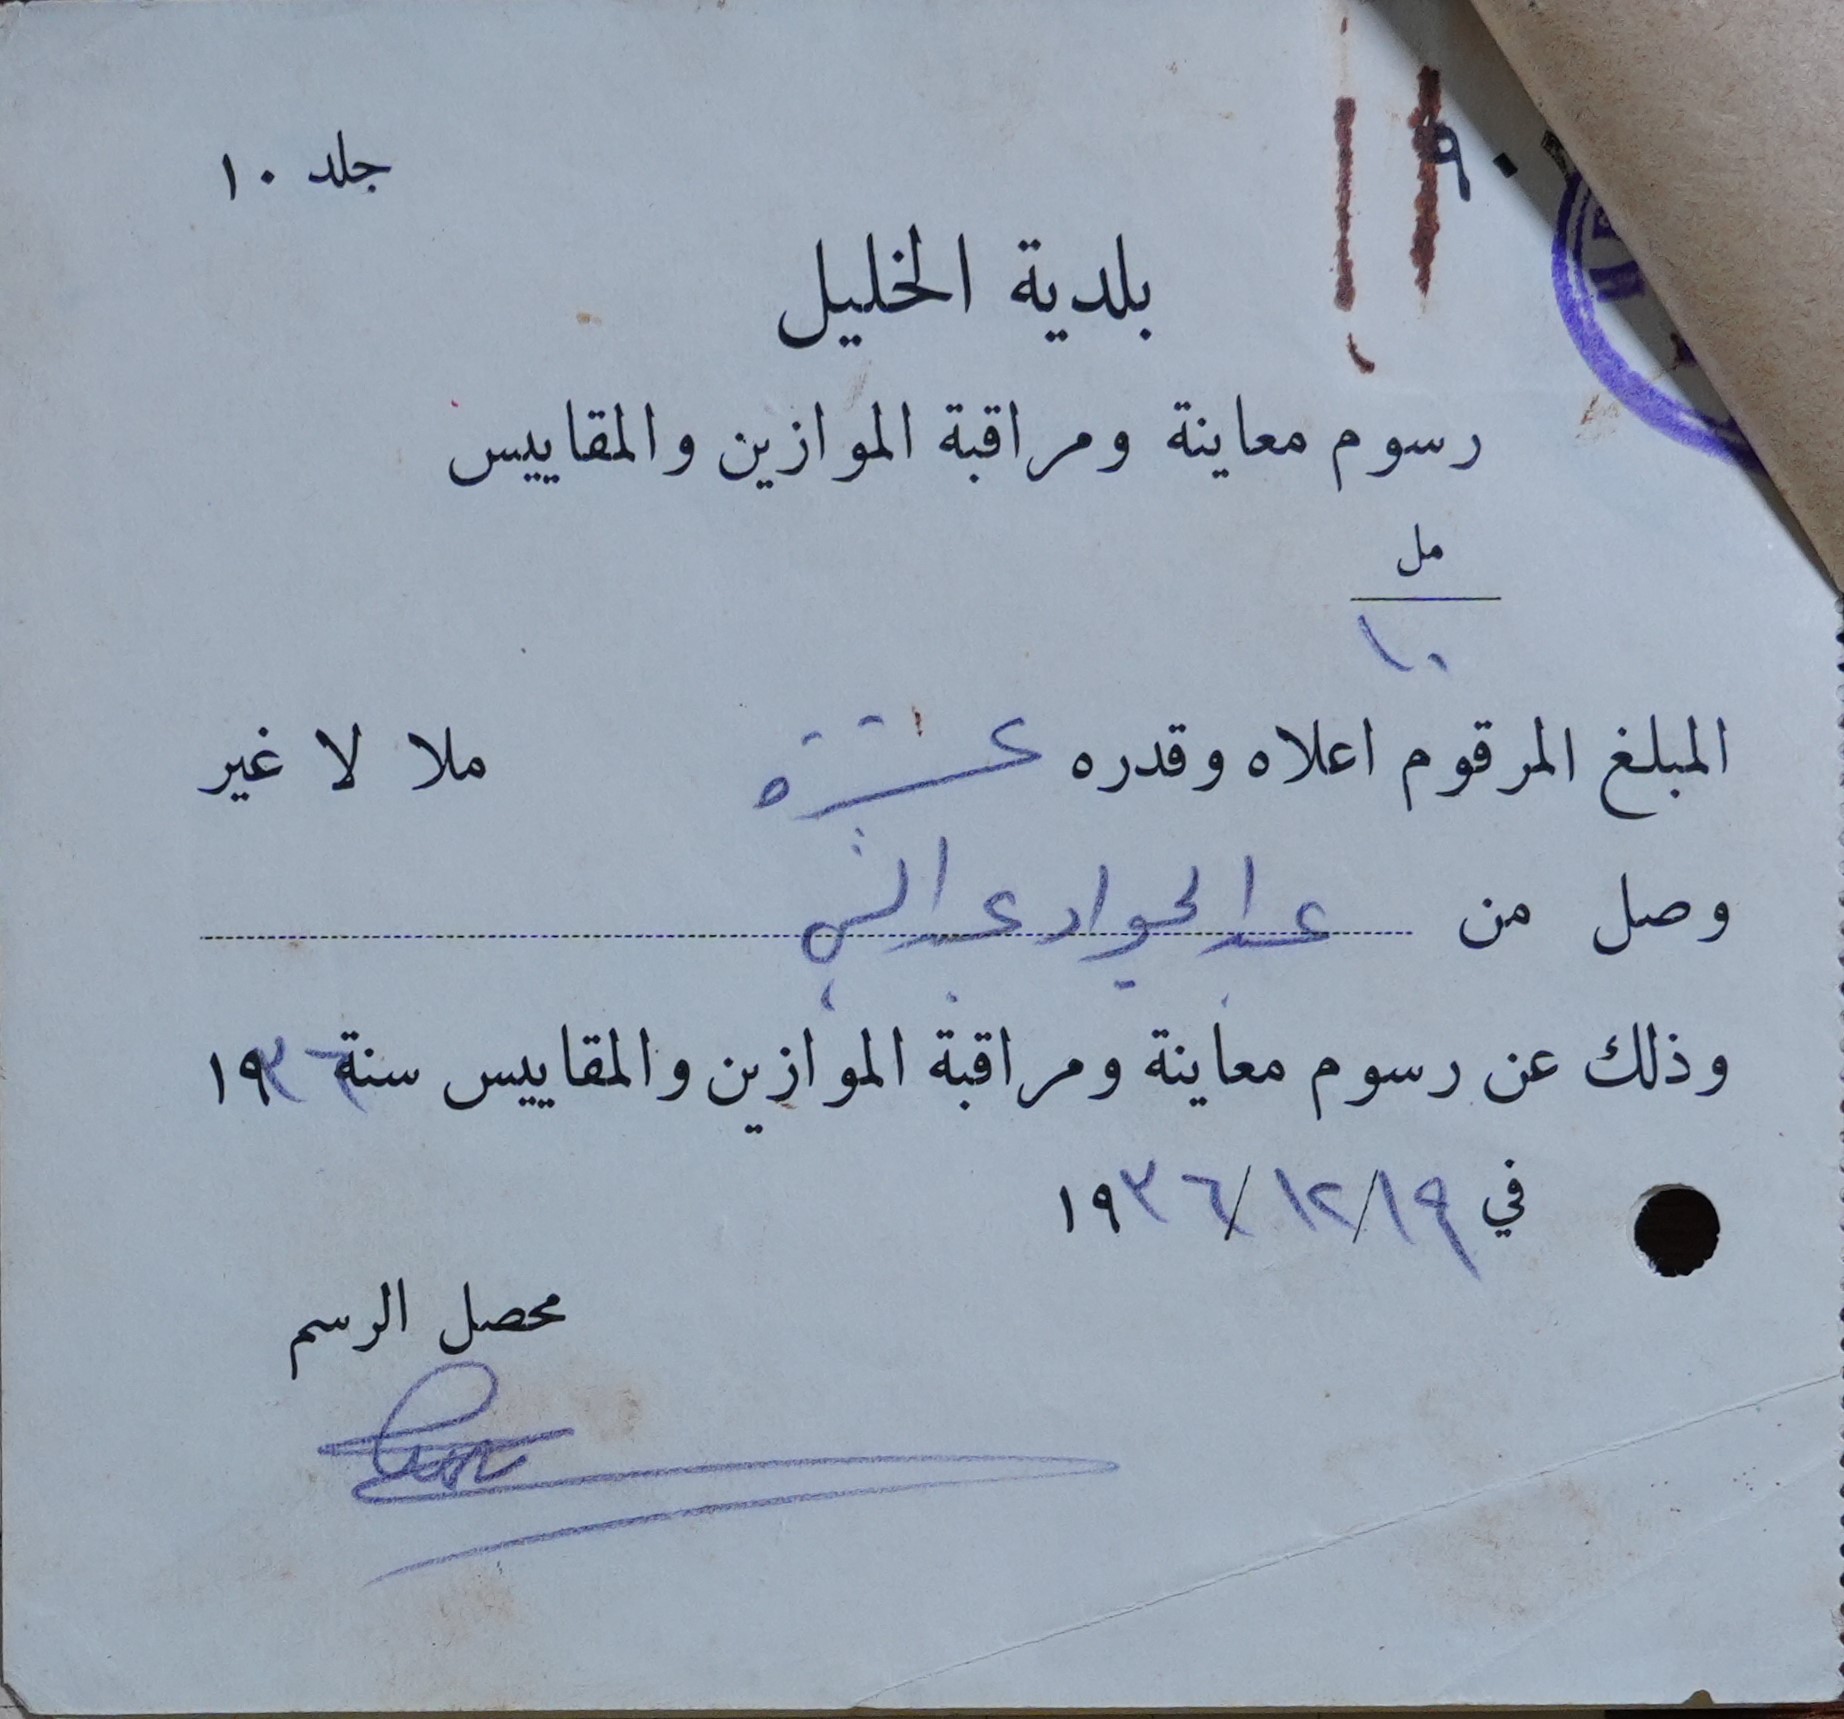 جلد ١٠
٩٠
بلدية الخليل
رسوم معاينة ومراقبة الموازين والمقاييس
مل
١٠
المبلغ المرقوم اعلاه وقدره عشرة ملا لا غير
وصل من عبد الجواد عبد النبي
وذلك عن رسوم معاينة ومراقبة الموازين والمقاييس سنة ١٩٣٦
في ١٩/١٢/١٩٣٦
محصل الرسم